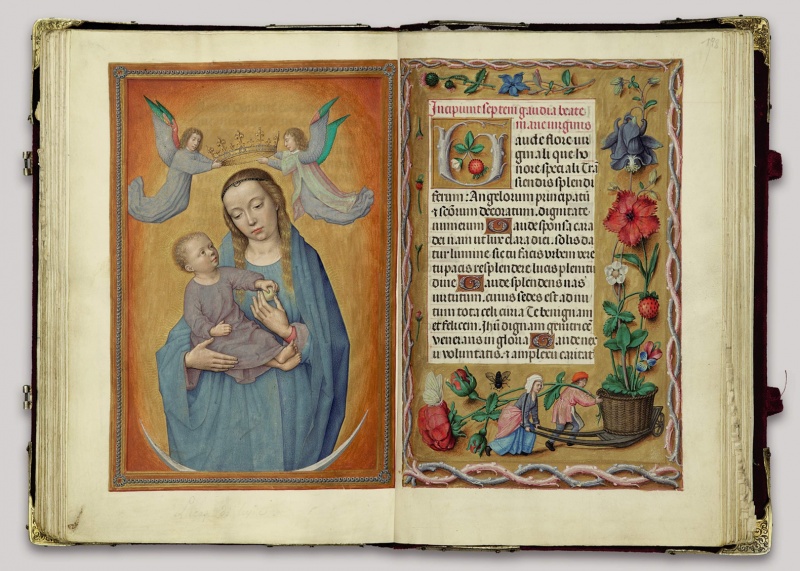 Incipiunt septem gaudia beate
marie virginis
Gaude flore vir
ginali que ho
nore speciali Trã
siendis splendi
ferum: Angelorum principatũ
& sc̃õum decoratum. dignitate
numerum Gaude sponsa cara
dei nam ut lux clara diei. solis da
tur lumine. sic tu facis orbem vere
tu pacis resplendere lucis plenitu
dine Gaude splendens vas
virtutum. cuius sedes est ad nu
tum tota celi curia Te benignam
et felicem. Jh̃u dignam genitricẽ
venerans in gloria Gaude nex
u voluntatis. & amplexu caritat